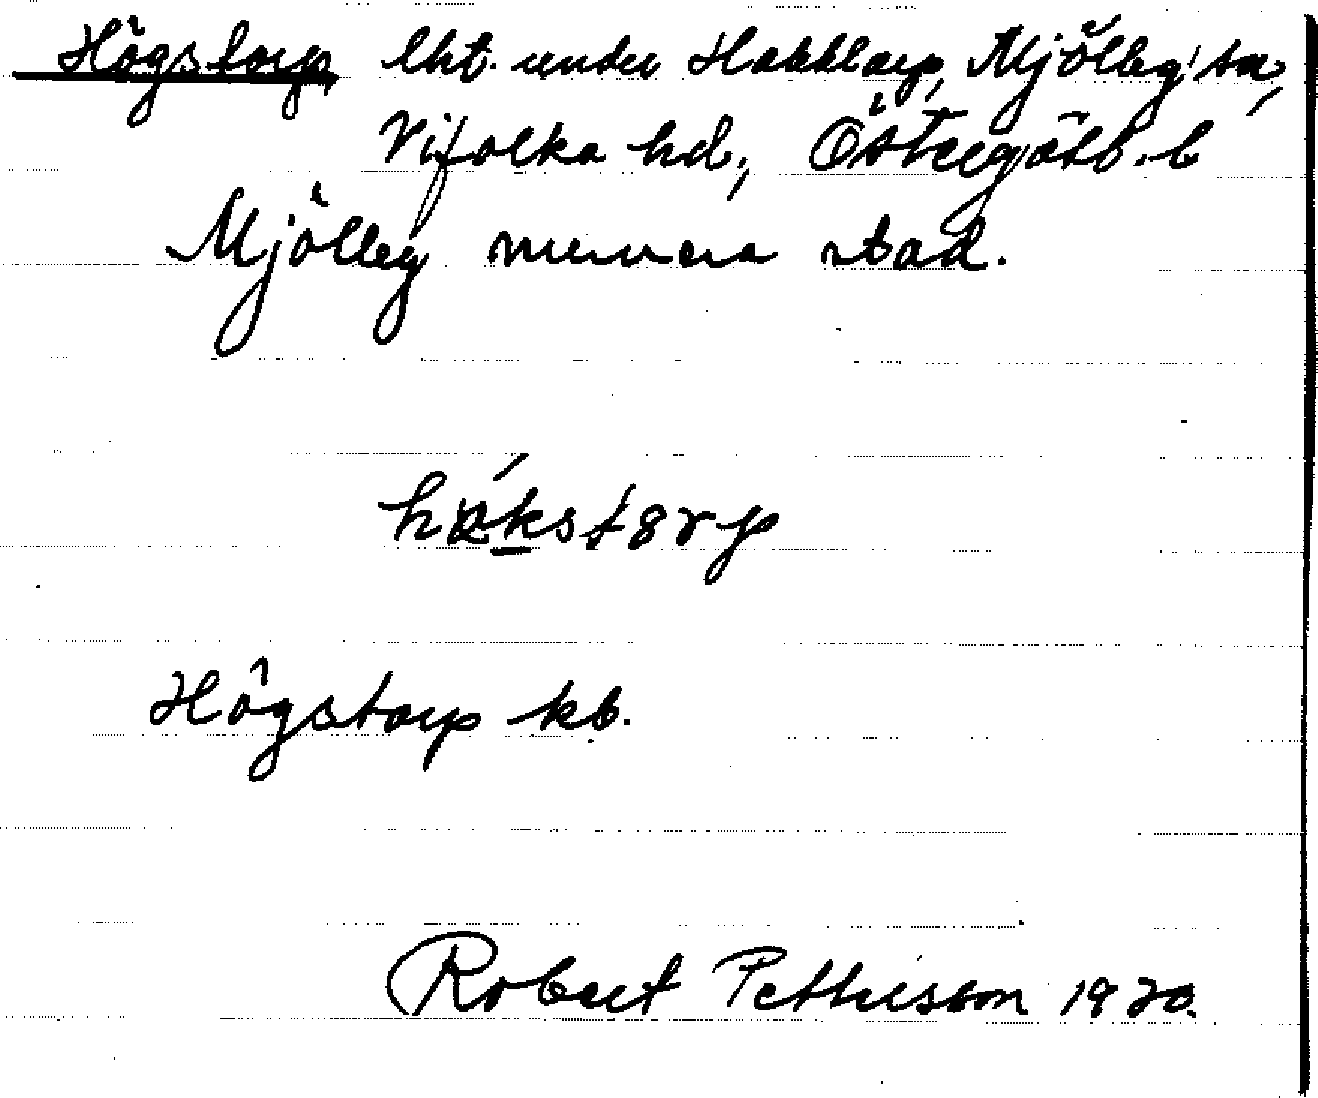 Högstorp lht. under Habblarp, Mjölby sn,
Vifolka hd, Östergötl. l
Mjölby numera stad.
hø̀kstørp
Högstorp kb.
Robert Pettersson 1920.